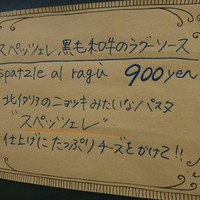 スペッツェレ,黒毛和牛のラグーソース
spatzle al ragù 900yen
北イタリアのニョッキみたいなパスタ
"スペッツェレ"
仕上げにたっぷりチーズをかけて!!